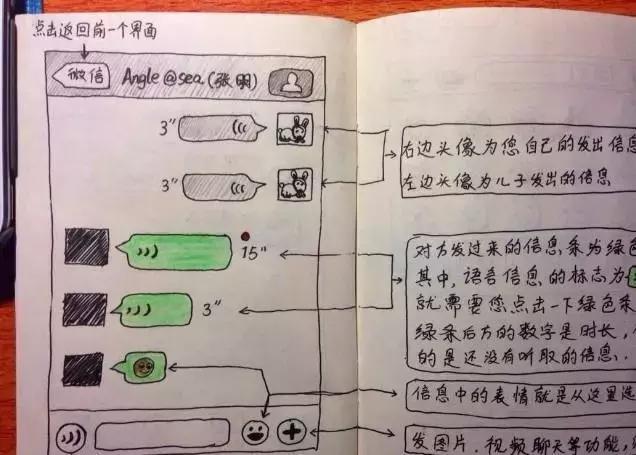 点击返回前一个界面
微信 Angle@sea.(张明)
3"
3"
15"
3"
右边头像为您自己的发出信息
左边头像为儿子发出的信息
对方发过来的信息条为绿色
其中,语音信息的标志为
就需要您点击一下绿色条
绿条后方的数字是时长,
的是还没有听取的信息.
信息中的表情就是从这里选
发图片.视频聊天等功能,